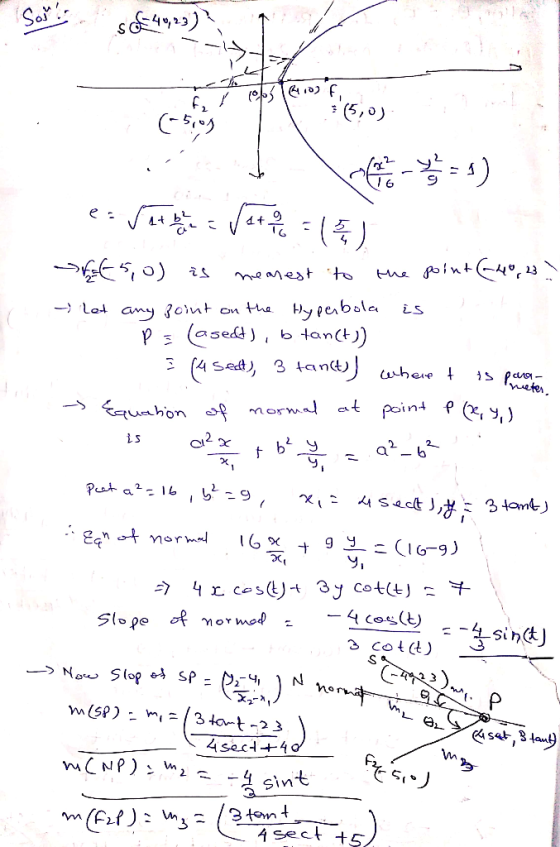 Sol<sup>n</sup>:-
S (-40,23)
F₂
(-5,0)
(0,0) (4,0) F₁
≡ (5,0)
→ (x²/16 - y²/9 = 1)
e = √(1+ b²/a²) = √(1+ 9/16) = (5/4)
→ F₂≡(-5,0) is nearest to the point (-40,23)
→ Let any point on the Hyperbola is
P ≡ (a sect), b tan(t))
≡ (4 sect), 3 tan(t)) where t is para-
meter.
→ Equation of normal at point P (x, y₁)
is a² x/x₁ + b² y/y₁ = a² - b²
Put a² = 16, b² = 9, x₁ = 4 sect), y₁ = 3 tant)
∴ Eqⁿ of normal 16 x/x₁ + 9 y/y₁ = (16-9)
⇒ 4x cos(t) + 3y cot(t) = 7
Slope of normal = -4 cos(t)/3 cot(t) = -4/3 sin(t)
→ Now Slop of SP = (y₂-y₁/x₂-x₁)
m(SP) = m₁ = (3 tant - 23/4 sect + 40)
m(NP) = m₂ = -4/3 sint
m(F₂P) = m₃ = (3 tant/4 sect + 5)
S (-40,23) m₁
N normal θ₁ P
m₂ θ₂ (4 sect, 3 tant)
F₂(-5,0) m₃